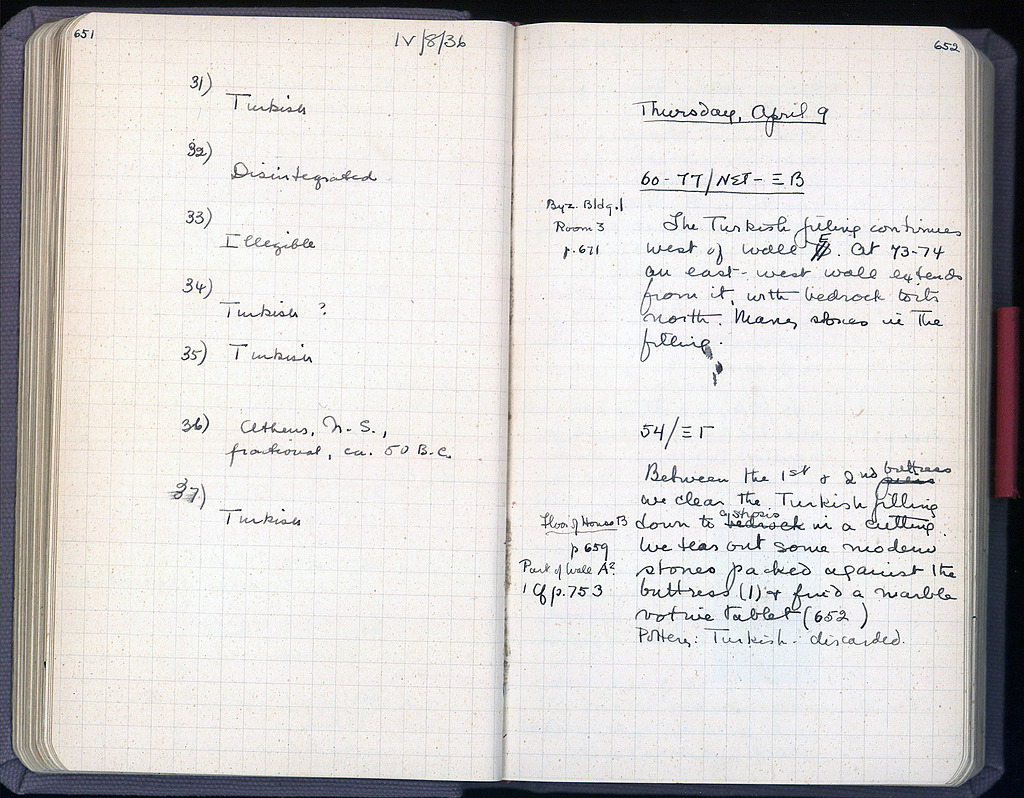 651
IV/8/36
31)
Turkish
32)
Disintegrated
33)
Illegible
34)
Turkish ?
35) Turkish
36) Athens, N. S.,
fractional, ca. 50 B.C.
37)
Turkish
652
Thursday, April 9
60-77/ΝΣΤ-ΞΒ
Byz. Bldg.
Room 3
p. 671
The Turkish filling continues
west of wall E. At 73-74
an east-west wall extends
from it, with bedrock to its
north. Many stones in the
filling.
54/ΞΓ
Between the 1st & 2nd buttress
we clear the Turkish filling
down to stosis in a cutting.
Floor of House B
p 659
Part of Wall A?
Cf p. 753
We tear out some modern
stones packed against the
buttress (1) & find a marble
votive tablet (652 )
Pottery: Turkish - discarded.